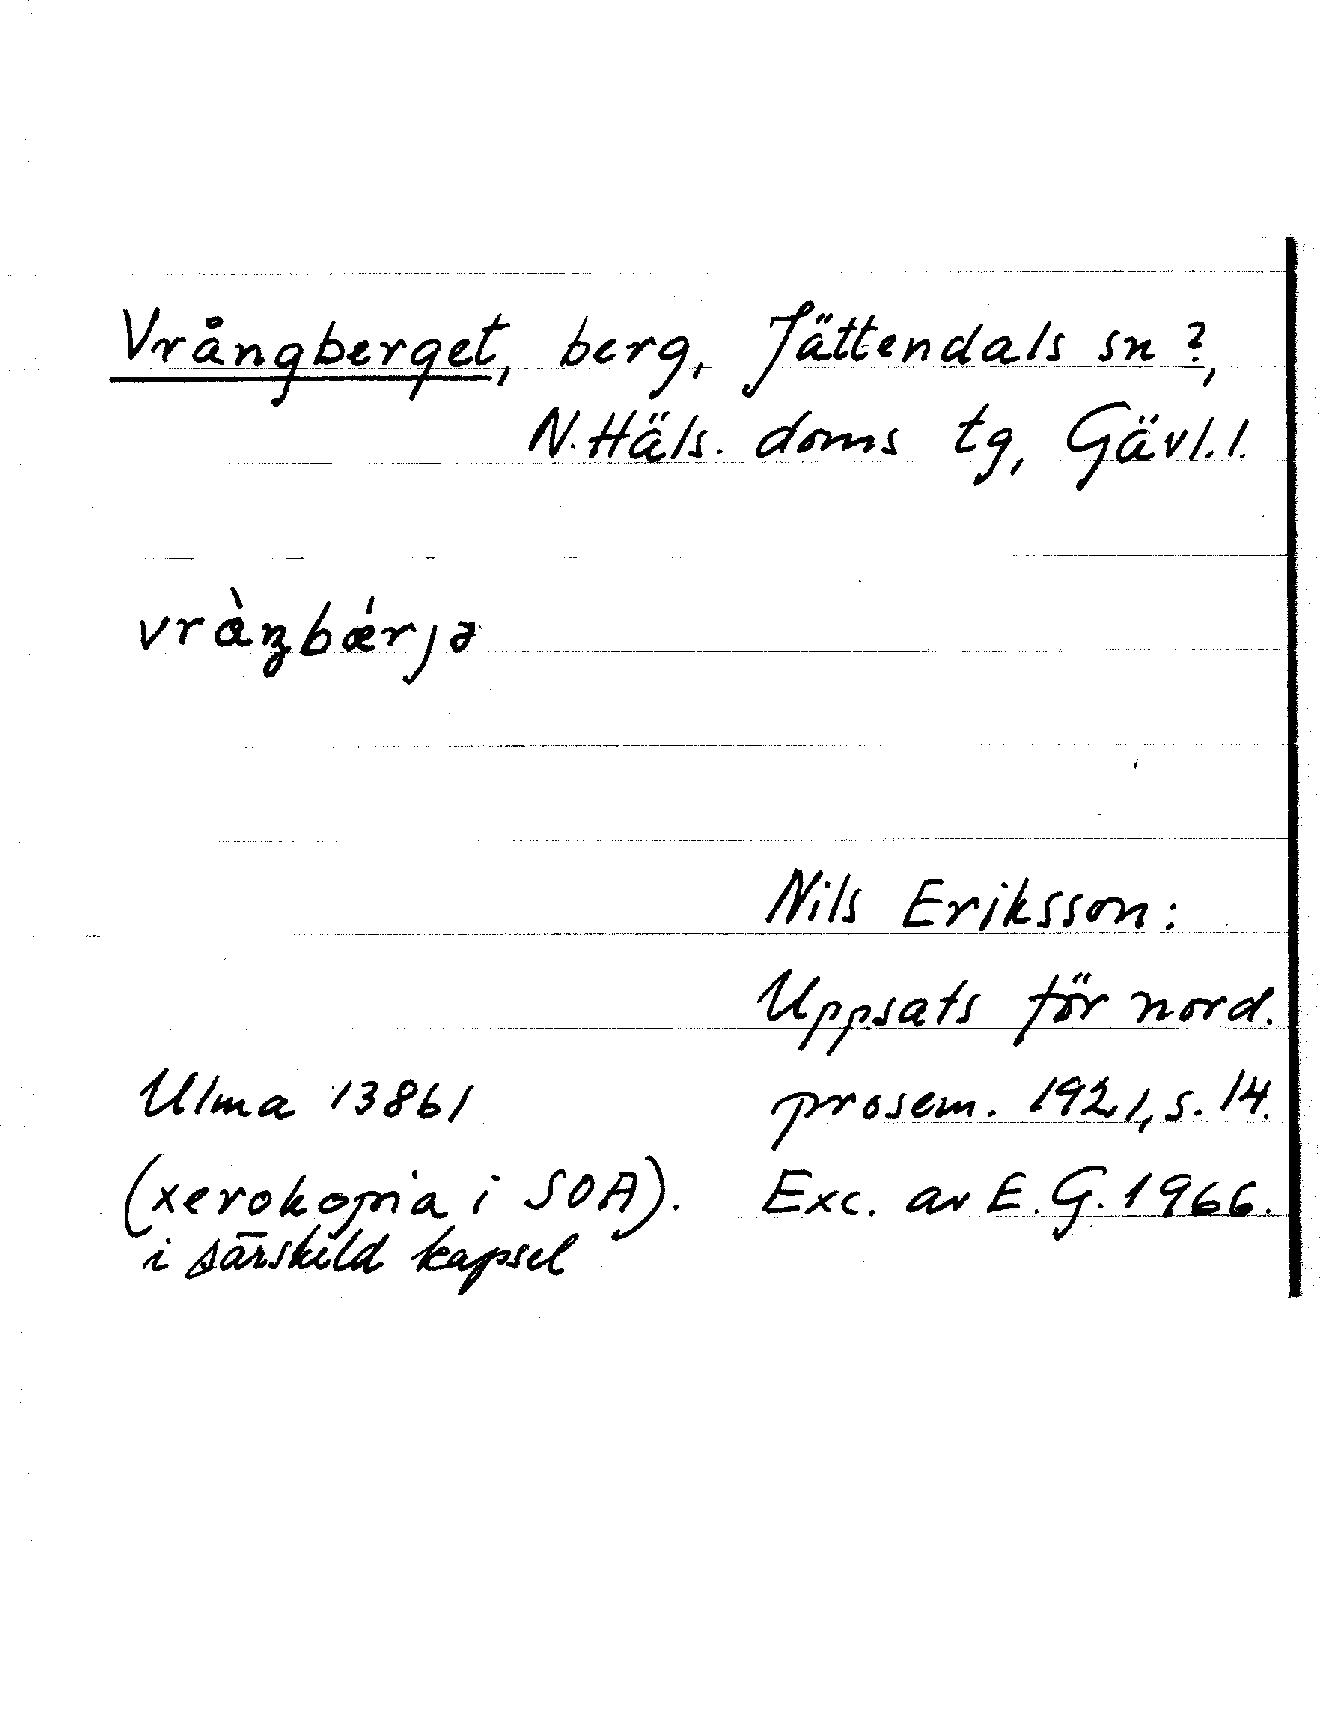 Vrångberget, berg, Jättendals sn?,
N. Häls. doms tg, Gävl. l.
vràŋbǽrjə
Nils Eriksson:
Uppsats för nord.
Ulma 13861 prosem. 1921, s. 14.
(xerokopia i SOA). Exc. av E. G. 1966.
i särskild kapsel